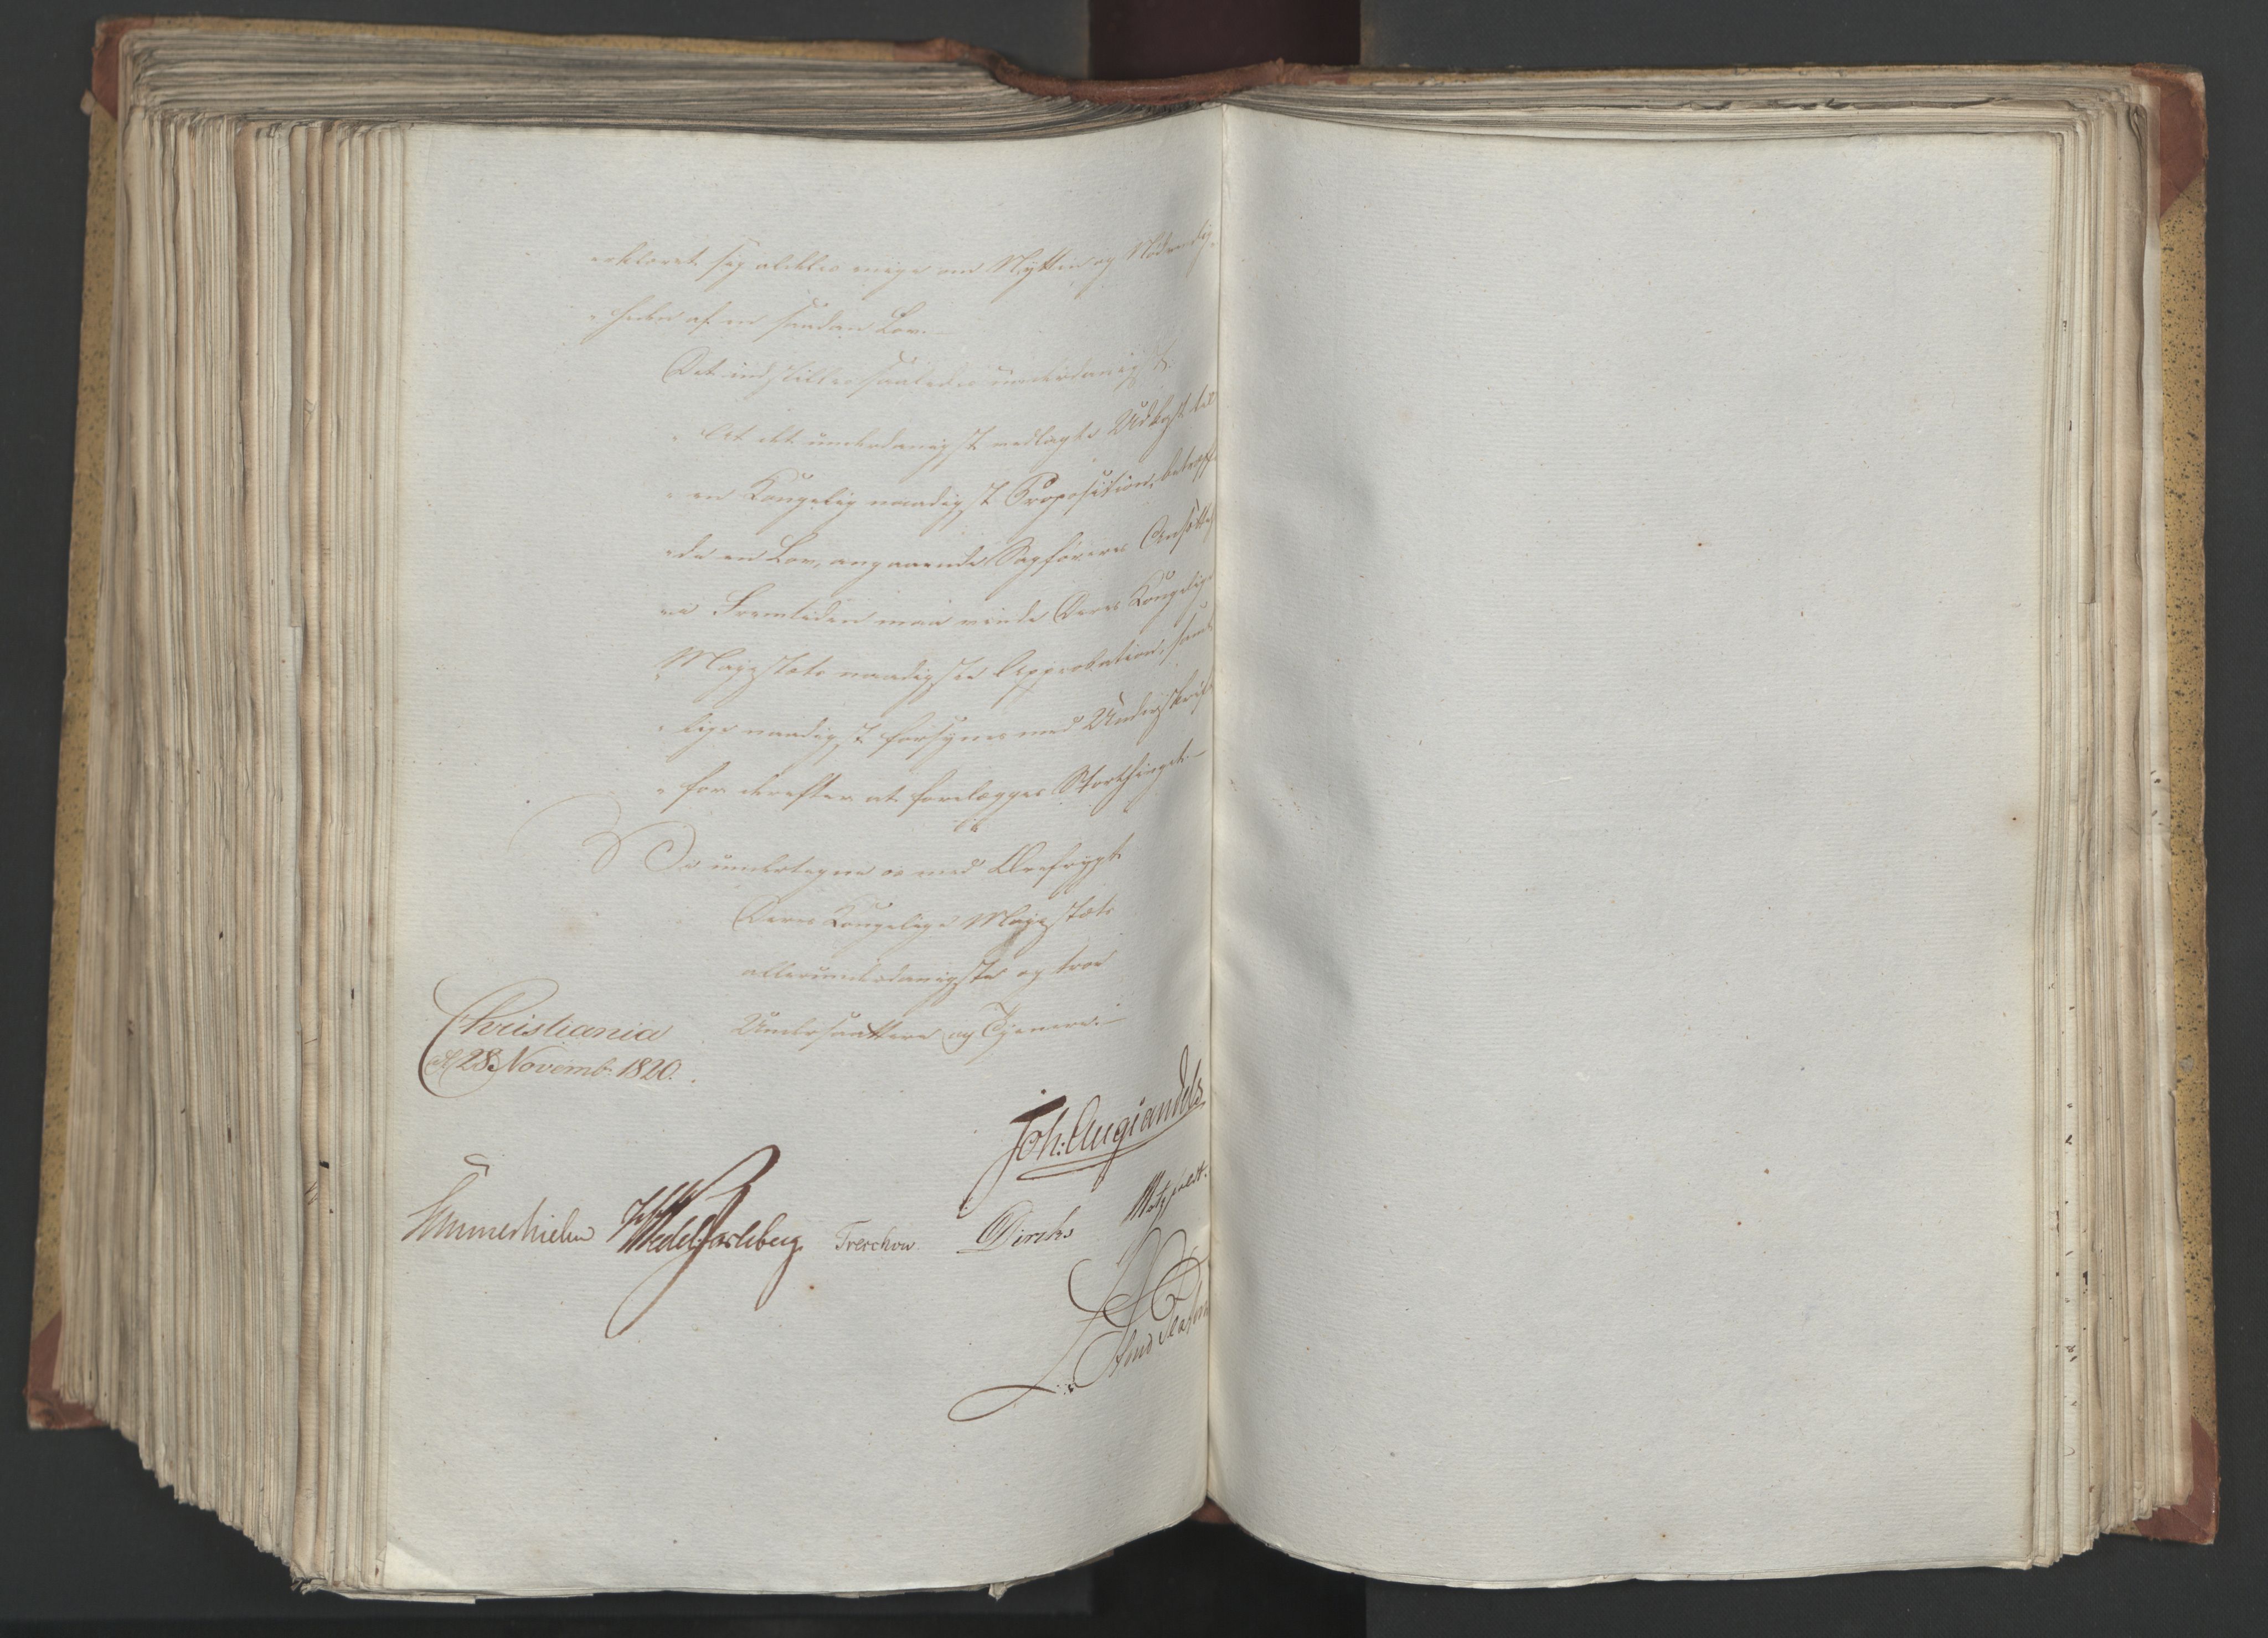 erklæret sig aldeles enige om Nytten og Nødvendig-
„heden af en saadan Lov.—
Det indstilles saaledes underdanigst:
„At det underdanigst vedlagte Udkast til
„en Kongelig naadigst Proposition, betreffen-
„de en Lov, angaaende Sagføreres Ansættelse
„i Fremtiden maa vinde Deres Kongelige
„Majestæts naadigste Approbation, samt
„lige naadigst forsynes med Underskrift
„for derefter at forelægges Storthinget.—
Vi undertegne os med Ærefrygt
Deres Kongelige Majestæts
allerunderdanigste og troe
Undersaattere og Tjenere.—
Christiania
d. 28 Novemb: 1820.
Joh: Aug: Sandels
Sommerhielm Wedel Jarlsberg Treschow Diriks Motzfeldt.